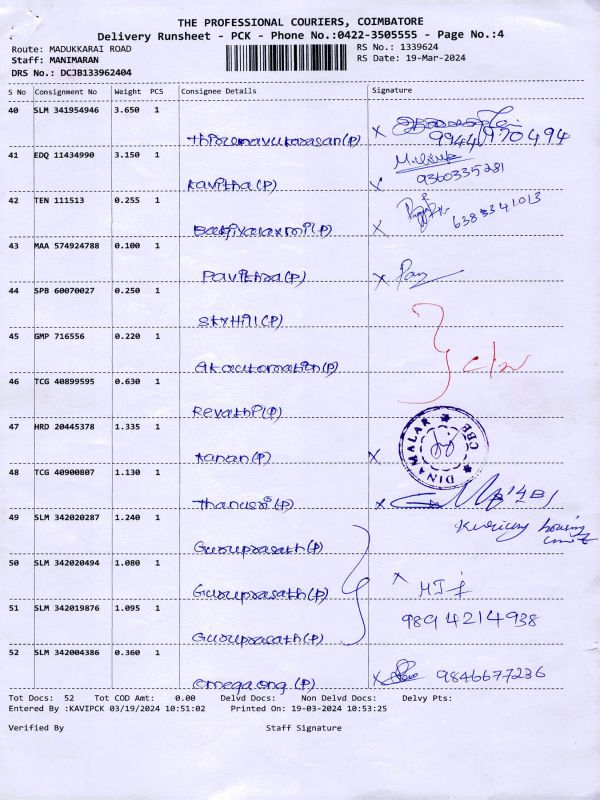 THE PROFESSIONAL COURIERS, COIMBATORE
Delivery Runsheet - PCK - Phone No.:0422-3505555 - Page No.:4
Route: MADUKKARAI ROAD RS No.: 1339624
Staff: MANIMARAN RS Date: 19-Mar-2024
DRS No.: DCJB133962404
S No Consignment No Weight PCS Consignee Details Signature
40 SLM 341954946 3.650 1
Thirunavukarasan(P) X 9944970494
41 EDQ 11434990 3.150 1
Kavitha(P) X 9360335281
42 TEN 111513 0.255 1
Bakiyalaxmi(P) X 6383341013
43 MAA 574924788 0.100 1
Pavithra(P) X
44 SPB 60070027 0.250 1
(P)
45 GMP 716556 0.220 1
automation(P)
46 TCG 40899595 0.630 1
Revathi(P)
47 HRD 20445378 1.335 1
Kanan(P) X
DINAMALAR CBE
48 TCG 40900807 1.130 1
(P) X
49 SLM 342020287 1.240 1
housing
Guruprasath(P)
50 SLM 342020494 1.080 1
Guruprasath(P) X
51 SLM 342019876 1.095 1
Guruprasath(P) 9894214938
52 SLM 342004386 0.360 1
(P) X 9846677236
Tot Docs: 52 Tot COD Amt: 0.00 Delvd Docs: Non Delvd Docs: Delvy Pts:
Entered By :KAVIPCK 03/19/2024 10:51:02 Printed On: 19-03-2024 10:53:25
Verified By Staff Signature